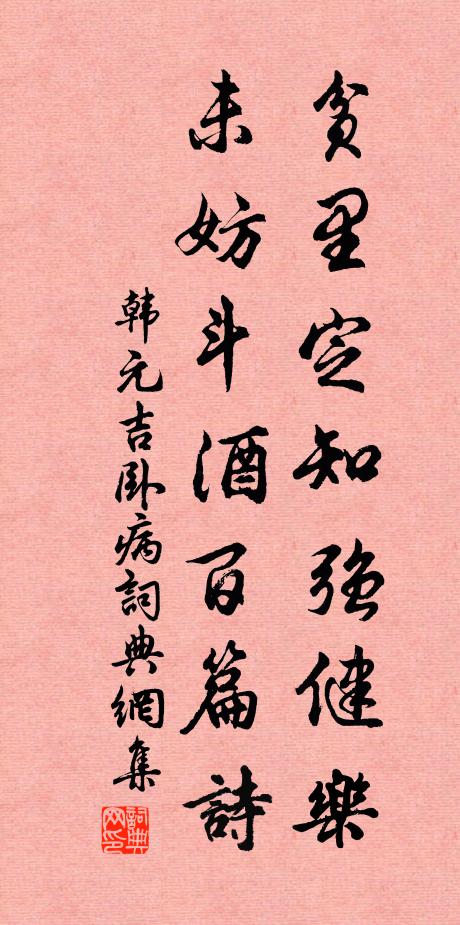 貧里定知強健樂
未妨斗酒百篇詩
韩元吉卧病詞典網集
詞典网印